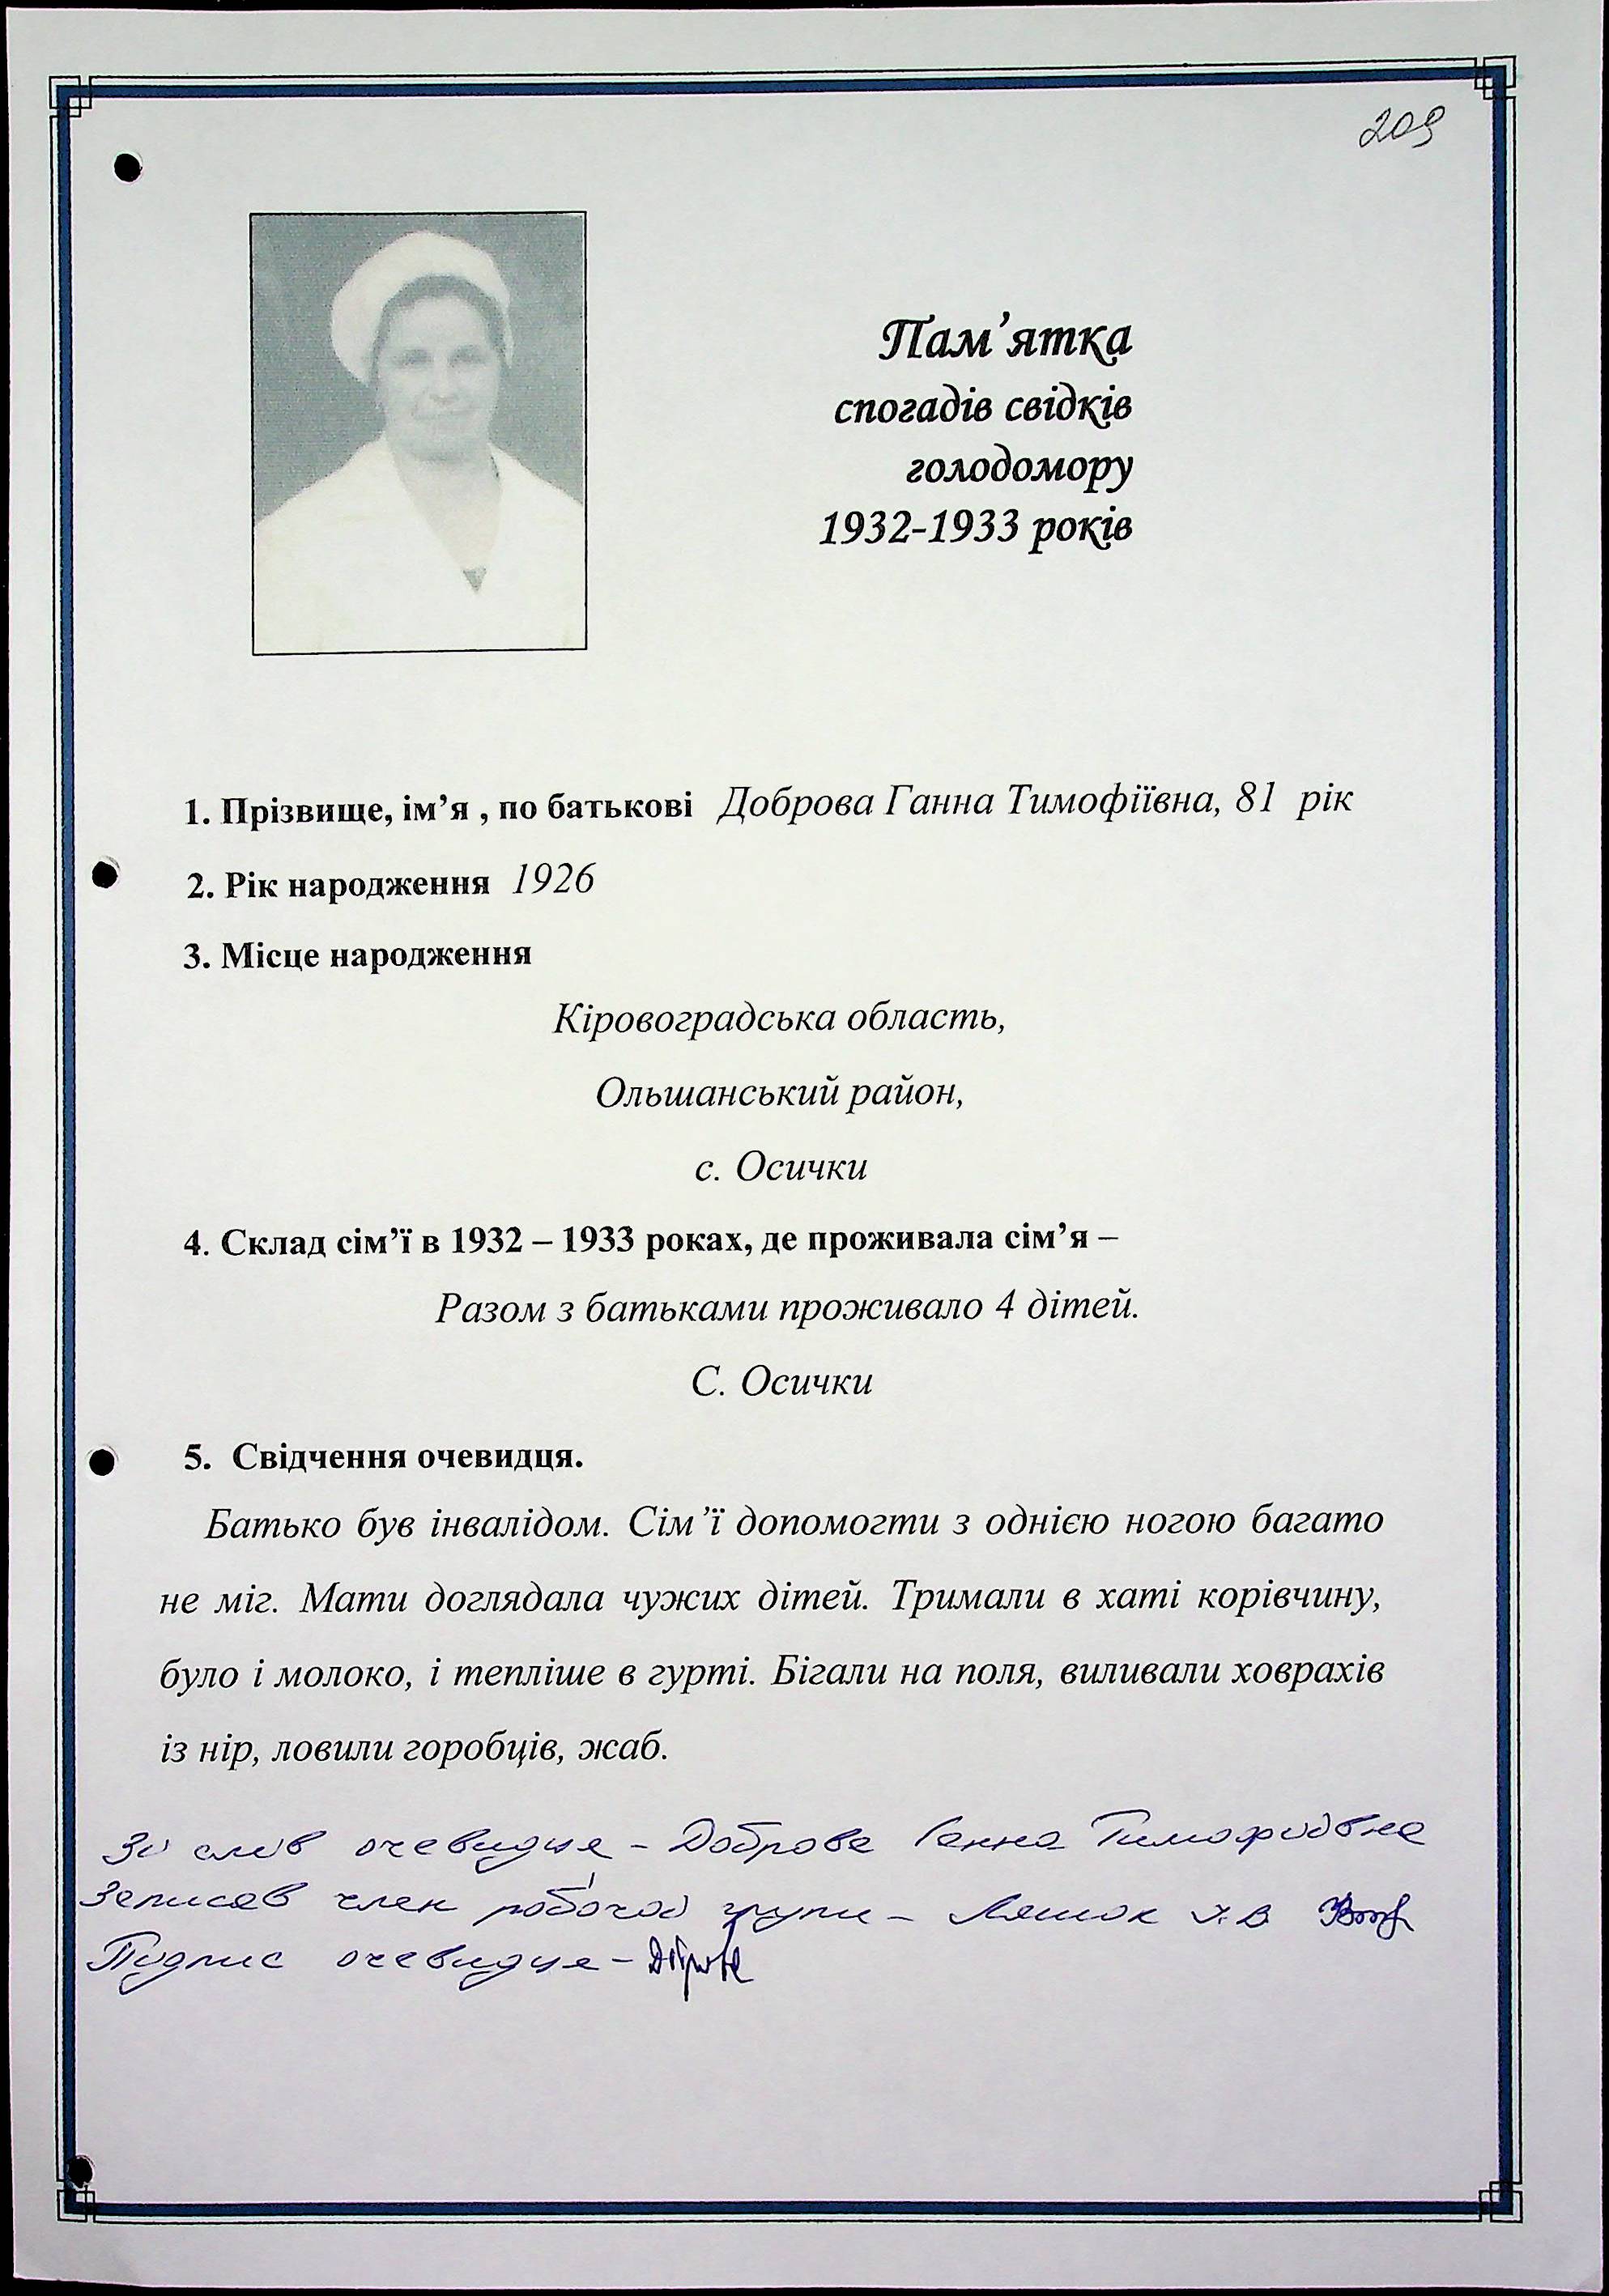 209
Пам’ятка
спогадів свідків
голодомору
1932-1933 років
1. Прізвище, ім’я , по батькові Доброва Ганна Тимофіївна, 81 рік
2. Рік народження 1926
3. Місце народження
Кіровоградська область,
Ольшанський район,
с. Осички
4. Склад сім’ї в 1932 – 1933 роках, де проживала сім’я –
Разом з батьками проживало 4 дітей.
С. Осички
5. Свідчення очевидця.
Батько був інвалідом. Сім’ї допомогти з однією ногою багато
не міг. Мати доглядала чужих дітей. Тримали в хаті корівчину,
було і молоко, і тепліше в гурті. Бігали на поля, виливали ховрахів
із нір, ловили горобців, жаб.
Зі слів очевидця – Доброва Ганна Тимофіївна
Записав член робочої групи –
Підпис очевидця –